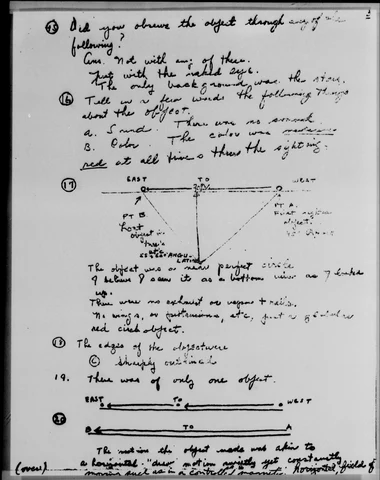 15 Did you observe the object through any of the
following?
Ans. Not with any of these.
Just with the naked eye.
The only background was the stars.
16 Tell in a few words the following things
about the object.
a. Sound. There was no sound
B. Color. The color was
red at all times thru the sighting.
17
EAST TO WEST
PT B PT A.
object
The object was a near perfect circle
I believe I saw it as a bottom view as I looked
up.
There were no exhaust or vapor trails.
No wings, or protrusions, etc, just a
red circle object.
18 The edges of the object were
C sharply outlined
19. There was only one object.
EAST TO WEST
20
B TO A
The motion the object made was akin to
a horizontal "draw" motion yet constantly
moving such as in a controlled magnetic horizontal field of
(over)